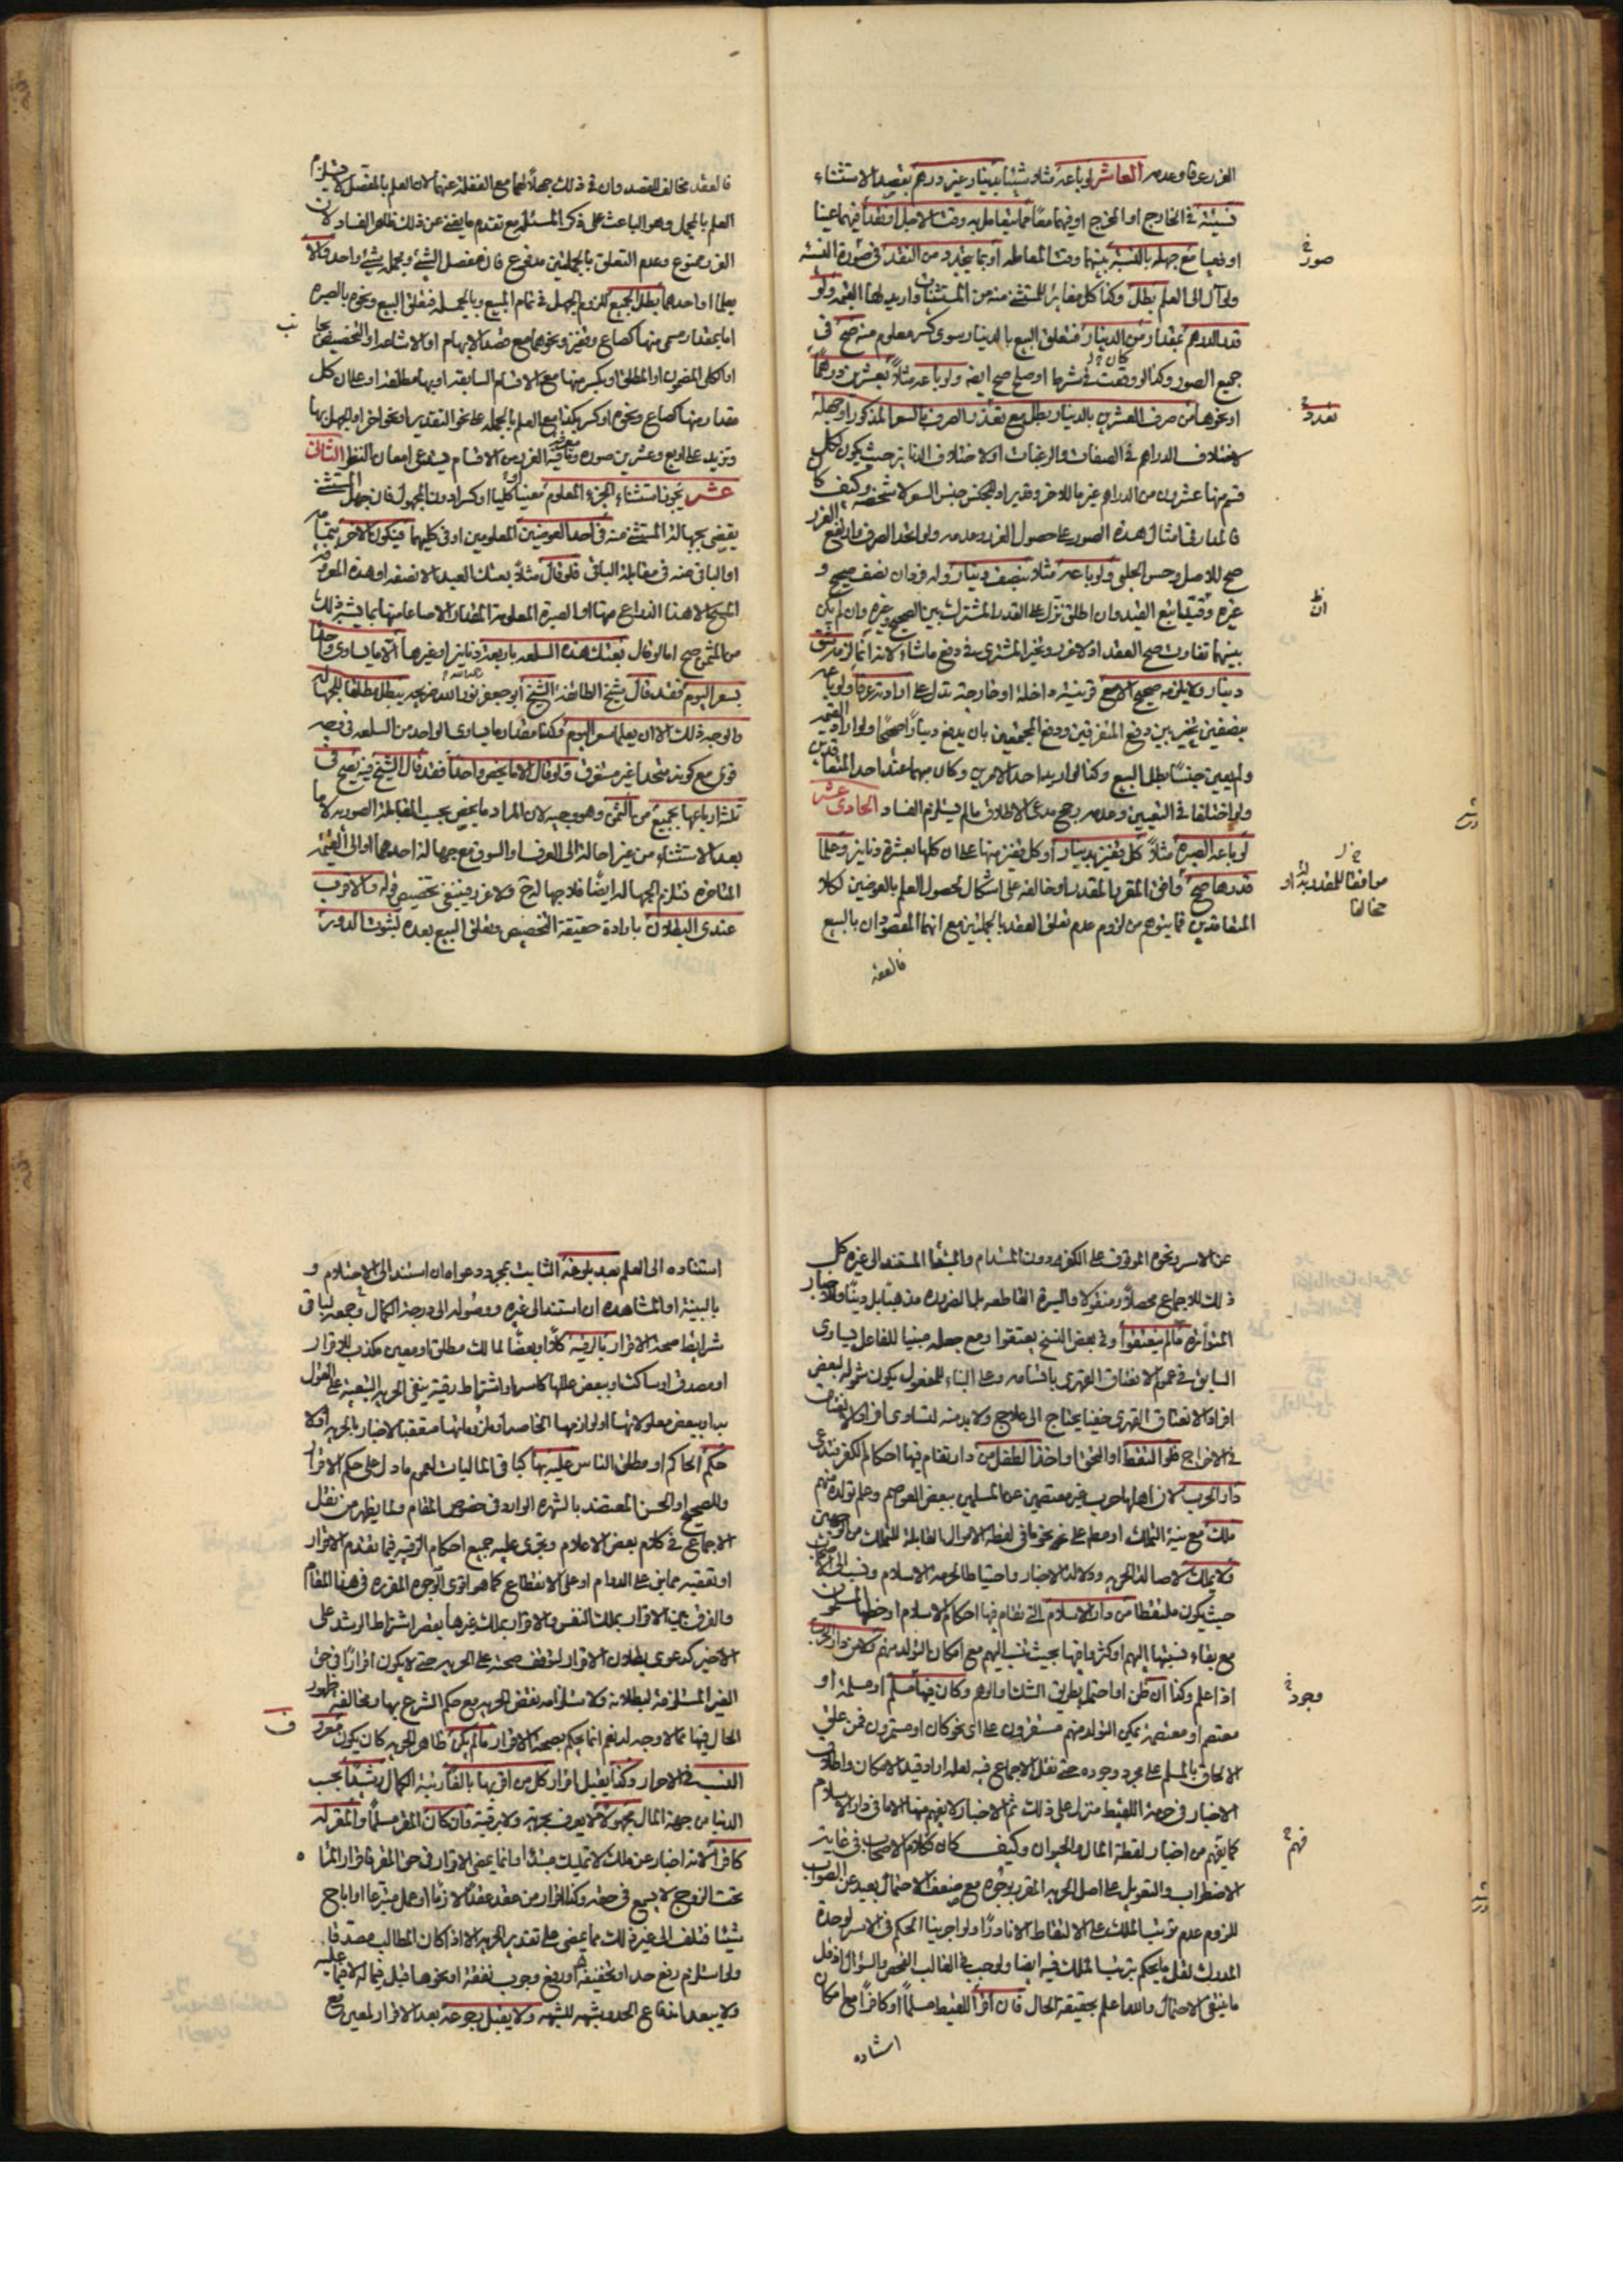 الغرر عرفا وعدمه العاشر لو باعه مثلا شيئا بدينار غير درهم بقصد الاستثناء
نسيئة في الخارج او المخرج او فيهما معا مما يتعامل به وقت الاجل او نقدا فيهما عينا
او فعيبا مع جهله بالنسبة بينهما وقت المعاملة او بما يتجدد من النقد في صورة النسيئة
صور
ولو آل الى العلم بطل وكذا كل مغاير للمستثنى منه من المستثنيات واريد لها القيمة ولو
قدر الدرهم بمقدار من الدينار فتعلق البيع بالدينار سوى كسر معلوم منه صح في
جميع الصور وكذا لو وقعت في شرائها او صلح صح ايضا ولو باعه مثلا بعشرين درهما
او نحوها من صرف العشرين بالدينار بطل مع تعدد الصرف بالسعر المذكور او جهله
تعدد
لاختلاف الدراهم في الصفات والرغبات او لاختلاف الدنانير حيث يكون لكل
قسم منها عشرون من الدراهم غير ما للاخر وتقدير اد للجنس جنس السعر لا شخصه وكيف كا
فالمدار في امثال هذه الصور على حصول الغرر وعدمه ولو اتحد الصرف وارتفع الغرر
صح للاصل وحسن الحلبي ولو باعه مثلا بنصف دينار وله فردان نصف صحيح و
غيره وقيد اتبع القيد وان اطلق نزل على القدر المشترك بين الصحيح وغيره وان لم يكن
بينهما تفاوت صح العقد اولا غرر وتخير المشتري في دفع ما شاء لانه انما لزمه شق
دينار ولا يلزمه صحيح الا مع قرينة داخلة او خارجة تدل على ارادته عرفا ولو باعه
بنصفين تخير بين دفع المتفرقين ودفع المجتمعين بان يدفع دينارا صحيحا ولو اراد القيمة
ولم يعين جنسا بطل البيع وكذا لو اريد احد الامرين وكان مبهما عند احد المتعاقدين
ولو اختلفا في التعيين وعدمه رجح مدعي الاطلاق ما لم يستلزم الفساد الحادي عشر
لو باعه الصبرة مثلا كل قفيز بدينار او كل قفيز منها على ان كلها بعشرة دنانير وعلما
قدرها صح وافق المقرر المقدر او خالفه على اشكال لحصول العلم بالعوضين لكلا
موافقا للمقدر بذا او
مخالفا
المتعاقدين فما يتوهم من لزوم عدم تعلق العقد بالجملتين مع انهما المقصودان بالبيع
فالعقد
فالعقد مخالف للقصد وان في ذلك جهلا لهما مع الغفلة عنهما لان العلم بالمفصل لا يستلزم
العلم بالمجمل وهو الباعث على ذكر المسئلة مع تقدم ما يغني عن ذلك ظاهر الفساد لان
الغرر ممنوع وعدم التعلق بالجملتين مدفوع فان مفصل الشيء ومجمله شيء واحد والا
يعلما او احدهما بطل الجميع للزوم الجهل في تمام المبيع وبالجملة فتعلق البيع ونحوه بالصبرة
اما بمقدار مسمى منها كصاع وقفيز ونحوهما مع قصد الابهام او الاشاعة او التخصيص بها
او الكلي المضمون او المطلق او بكسر منها مع الاقسام السابقة او بها مطلقة او على ان كل
مقدار منها كصاع ونحوه او كسر بكذا مع العلم بالجملة على نحو التقدير او نحو اخر او الجهل بها
وتزيد على اربع وعشرين صورة ونافية الغرر من الاقسام يستدعي امعان النظر الثاني
عشر يجوز استثناء الجزء المعلوم معينا او كليا او كسرا دون المجهول فان جهل المستثنى
يقضي بجهالة المستثنى منه في احد العوضين المعلومين او في كليهما فيكون الاخر بتمامه
او الباقي منه في مقابلة الباقي فلو قال مثلا بعتك العبد الا نصفه او هذه المعرفة
المبيع الا هذا الذراع منها او الصبرة المعلومة المقدار الا صاعا منها بما يشير ذلك
من الثمن صح اما لو قال بعتك هذه السلعة باربعة دنانير او غيرها الا ما يساوي واحدا
بسعر اليوم فقد قال شيخ الطائفة الشيخ ابو جعفر نور الله ضريحه يبطل مطلقا للجهالة
والوجه ذلك الا ان يعلما سعر اليوم وكذا مقدار ما يساوي الواحد من السلعة في وجه
قوي مع كونه متحدا غير متفرق فلو قال الا ما يخص واحدا فقد قال الشيخ فيه يصح في
ثلثة ارباعها بجميع من الثمن وهو وجيه لان المراد ما يخص بحسب المقابلة الصورية لا ما
بعد الاستثناء من غير احالة الى العرف او السوق مع جهالة احدهما او الى القيمة
المتاخرة فتلزم الجهالة ايضا فلا جهالة ح ولا غرر فينبغي تخصيص قوله والاقرب
عندي البطلان بارادة حقيقة التخصيص وتعلق البيع بعده لثبوت الدور
عن الاسر ونحوه الموقوف على الكفر دون المستدام والمبتدا المستند الى غيره كل
ذلك للاجماع محصلا ومنقولا والسيرة القاطعة بل الضرورة مذهبا بل دينا والاخبار
المتواترة ما لم ينعتقوا وفي بعض النسخ يعتقوا ومع جعله مبنيا للفاعل يساوي
السابق في عموم الانعتاق القهري باقسامه وعلى البناء للمفعول يكون شموله لبعض
افراد الانعتاق القهري خفيا يحتاج الى علاج ولا بد منه لتساوي افراد الانعتاق
في الاخراج فلو التقط او التحق او اخذ الطفل من دار تقام فيها احكام الكفر فتدعى
دار الحرب لان اهلها حرب غير معتصمين عن المسلمين ببعض العواصم وعلم تولده منهم
ملك مع نية التملك او معها على نحو ما في لقطة الاموال القابلة للتملك من
ولا يملك لاصالة الحرية ودلالة الاخبار واحتياطا لحرمة الاسلام
حيث يكون ملتقطا من دار الاسلام التي تقام فيها احكام الاسلام او خطها المسلمون
مع بقاء نسبتها اليهم او كثروا فيها بحيث تنسب اليهم مع امكان التولد منهم ولا من دار الحرب
اذا علم وكذا ان ظن او احتمل بطريق الشك او الوهم وكان فيها مسلم او مسلمة او
وجود
معتصم او معتصمة يمكن التولد منهم مستقرون على اي نحو كان او مستمرون فمن علق
الالحاق بالمسلم على مجرد وجوده حتى نقل الاجماع فيه لعله اراد قيد الامكان واطلاق
الاخبار في حرية اللقيط منزل على ذلك ثم الاخبار لا يفهم منها الا ما في دار الاسلام
كما يفهم من اخبار لقطة المال والحيوان وكيف كان فكلام الاصحاب في غاية
فهم
الاضطراب والتعويل على اصل الحرية المقرر بوجوه مع ضعف الاحتمال بعيد عن الصواب
للزوم عدم ترتب الملك على الالتقاط الا نادرا ولو اجرينا الحكم في الاسر لوحدة
المدرك لقل ما يحكم بترتب الملك فيه ايضا ولوجب في الغالب الفحص والسؤال اذ قل
ما ينتفي الاحتمال والله اعلم بحقيقة الحال فان اقر اللقيط مسلما او كافرا مع امكان
استناده
استناده الى العلم بعد بلوغه الثابت بمجرد دعواه ان استند الى الاحتلام و
بالبينة او المشاهدة ان استند الى غيره ووصوله الى درجة الكمال وجمعه لباقي
شرايط صحة الاقرار بالرقية كلا او بعضا لمالك مطلق او معين مكذب للاقرار
او مصدق او ساكت او ببعض عللها كاسر او اشتراط رقية بنفي الحرية التبعية على القول
به او ببعض معلولاتها او لوازمها الخاصة او ملزوماتها متعقبا لاخبار بالحرية او لا
حكم الحاكم او مطلق الناس عليه بها كما في الماليات لعموم ما دل على حكم الاقرار
وللصحيح او الحسن المعتضد بالشهرة الوارد في خصوص المقام ولما يظهر من نقل
الاجماع في كلام بعض الاعلام ويجري عليه جميع احكام الرقية فيما تقدم الاقرار
او تعقبه مما بني على الدوام او على الانقطاع كما هو اقوى الوجوه المقررة في هذا المقام
والفرق بين الاقرار بملك النفس والاقرار بملك غيرها بقصر اشتراط الرشد على
الاخير كدعوى بطلان الاقرار لتوقف صحته على الحرية حتى لا يكون اقرارا في حق
الغير المستلزمة لبطلانه ولاستلزامه نقض الحرية مع حكم الشرع بها ومخالفة ظهور
الحال فيها مما لا وجه له نعم انما يحكم بصحة الاقرار ما لم يكن ظاهر الحرية كان يكون معروف
النسب في الاحرار وكذا يقبل اقرار كل من اقر بها بالغا رتبة الكمال رشيدا بحسب
الدنيا من جهة المال مجهولا لا يعرف بحرية ولا برقية وان كان المقر مسلما والمقر له
كافرا لانه اخبار عن ملك لا تمليك مبتدا وانما يمضي الاقرار في حق المقر فاقرار المراة
تحت الزوج لا يسمع في حقه وكذا اقرار من عقد عقدا لازما او عمل متبرعا او اباح
شيئا فتلف الى غير ذلك مما يمضي على تقدير الحرية الا اذا كان المطالب مصدقا
ولو استلزم رفع حد او تخفيفه او رفع وجوب نفقة او نحوها قبل فيما له لا فيما عليه
ولا يبعد اندفاع الحد وشبهه للشبهة ولا يقبل رجوعه بعد الاقرار لمعين مع